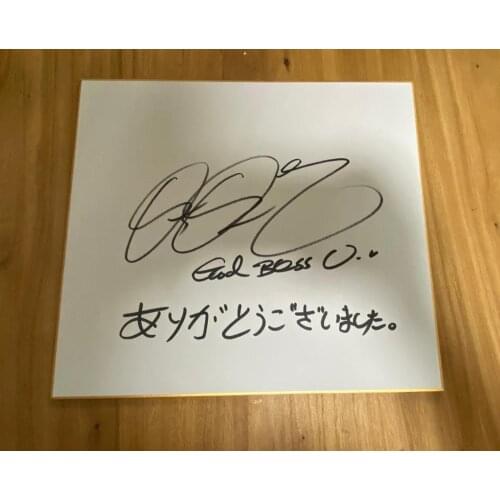 God Bless U..
ありがとうございました。